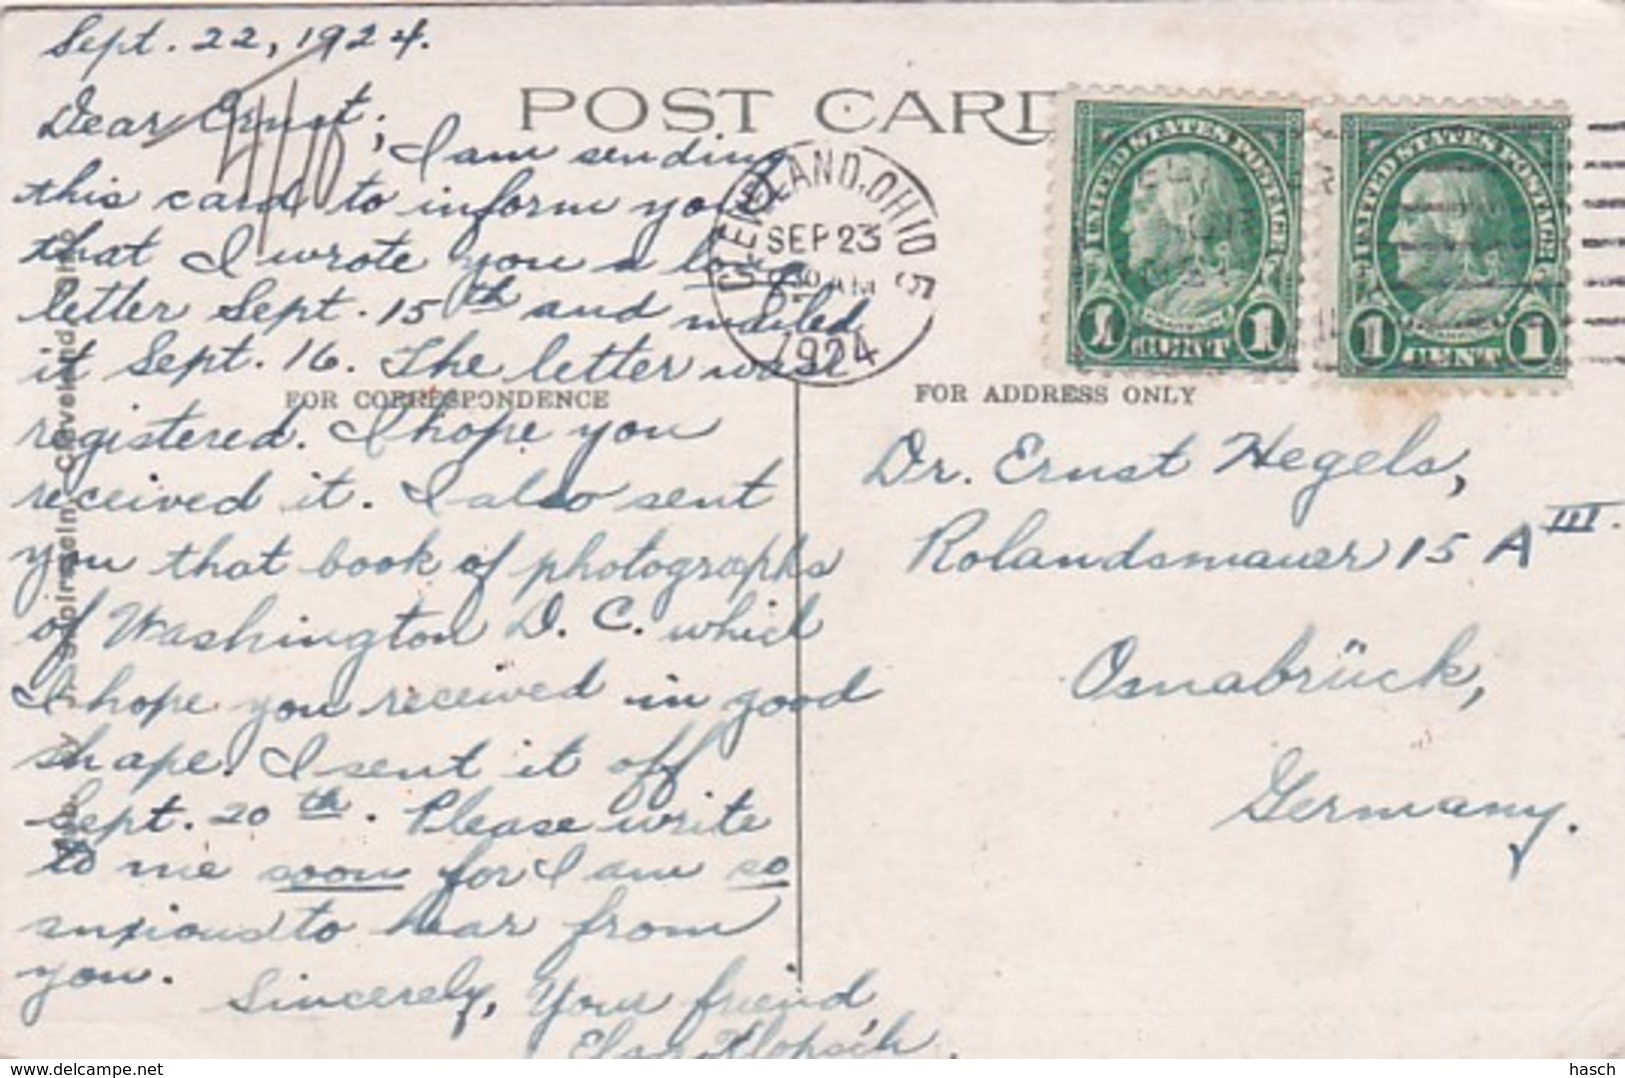 Sept. 22, 1924.
POST CARD
Dear Ernst;
I am sending
this card to inform you
that I wrote you a long
letter Sept. 15th and mailed
it Sept. 16. The letter was
registered. I hope you
received it. I also sent
you that book of photographs
of Washington D. C. which
I hope you received in good
shape. I sent it off
Sept. 20th. Please write
to me soon for I am so
anxious to hear from
you.
Sincerely, Your friend,
FOR CORRESPONDENCE
CLEVELAND, OHIO 5
SEP 23
AM
1924
UNITED STATES POSTAGE
1 CENT 1
UNITED STATES POSTAGE
1 CENT 1
FOR ADDRESS ONLY
Dr. Ernst Hegels,
Rolandsmauer 15 A III.
Osnabrück,
Germany.
www.delcampe.net
hasch